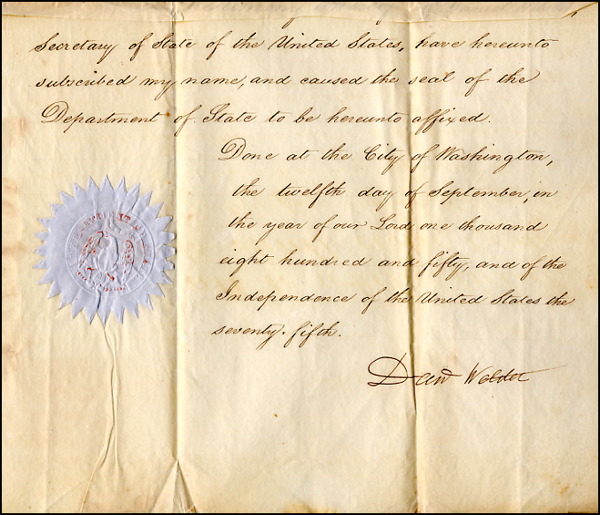 Secretary of State of the United States, have hereunto
subscribed my name, and caused the seal of the
Department of State to be hereunto affixed.
Done at the City of Washington,
the twelfth day of September, in
the year of our Lord one thousand
eight hundred and fifty, and of the
Independence of the United States the
seventy-fifth.
Danl Webster